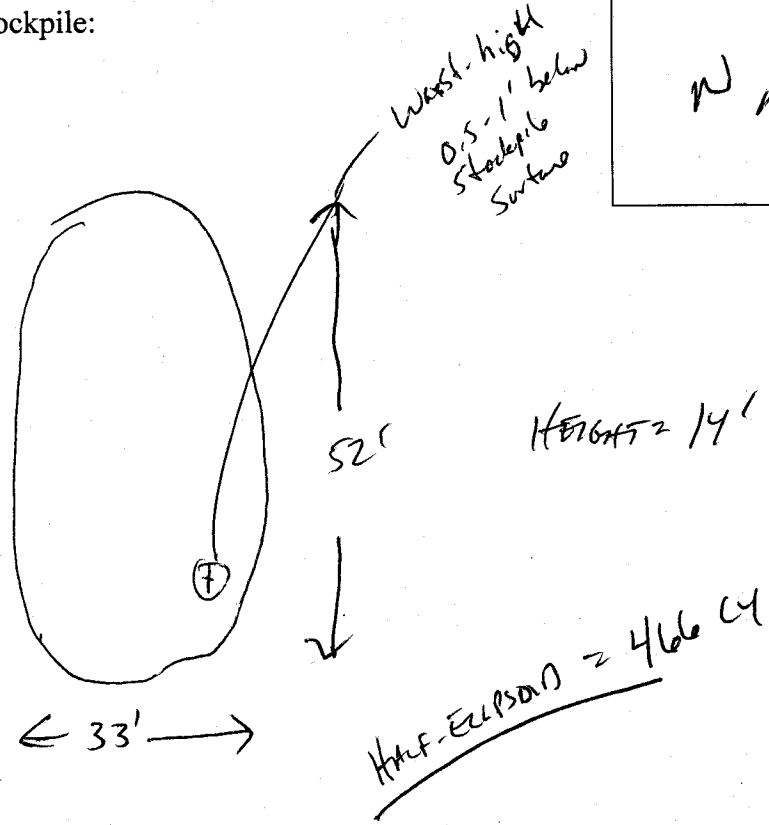 ockpile:
Waist-high
0.5-1' below
Stockpile
Surface
N
52'
HEIGHT = 14'
7
33'
HALF-ELLIPSOID = 466 CY